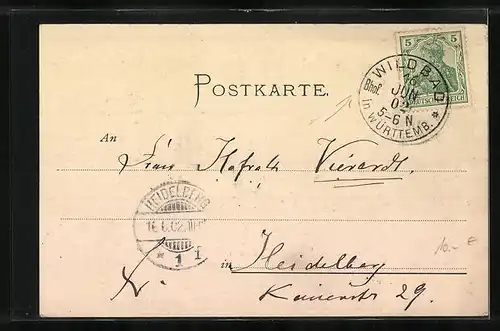 5
DEUTSCHES REICH
WILDBAD
Bhof.
16 JUN 02
5-6 N
in WÜRTTEMB. *
POSTKARTE.
An
Frau Hofrath Vierordt.
HEIDELBERG
16.6.02.
* 1 1
in Heidelberg
Kaiserstr 29.
10.- E